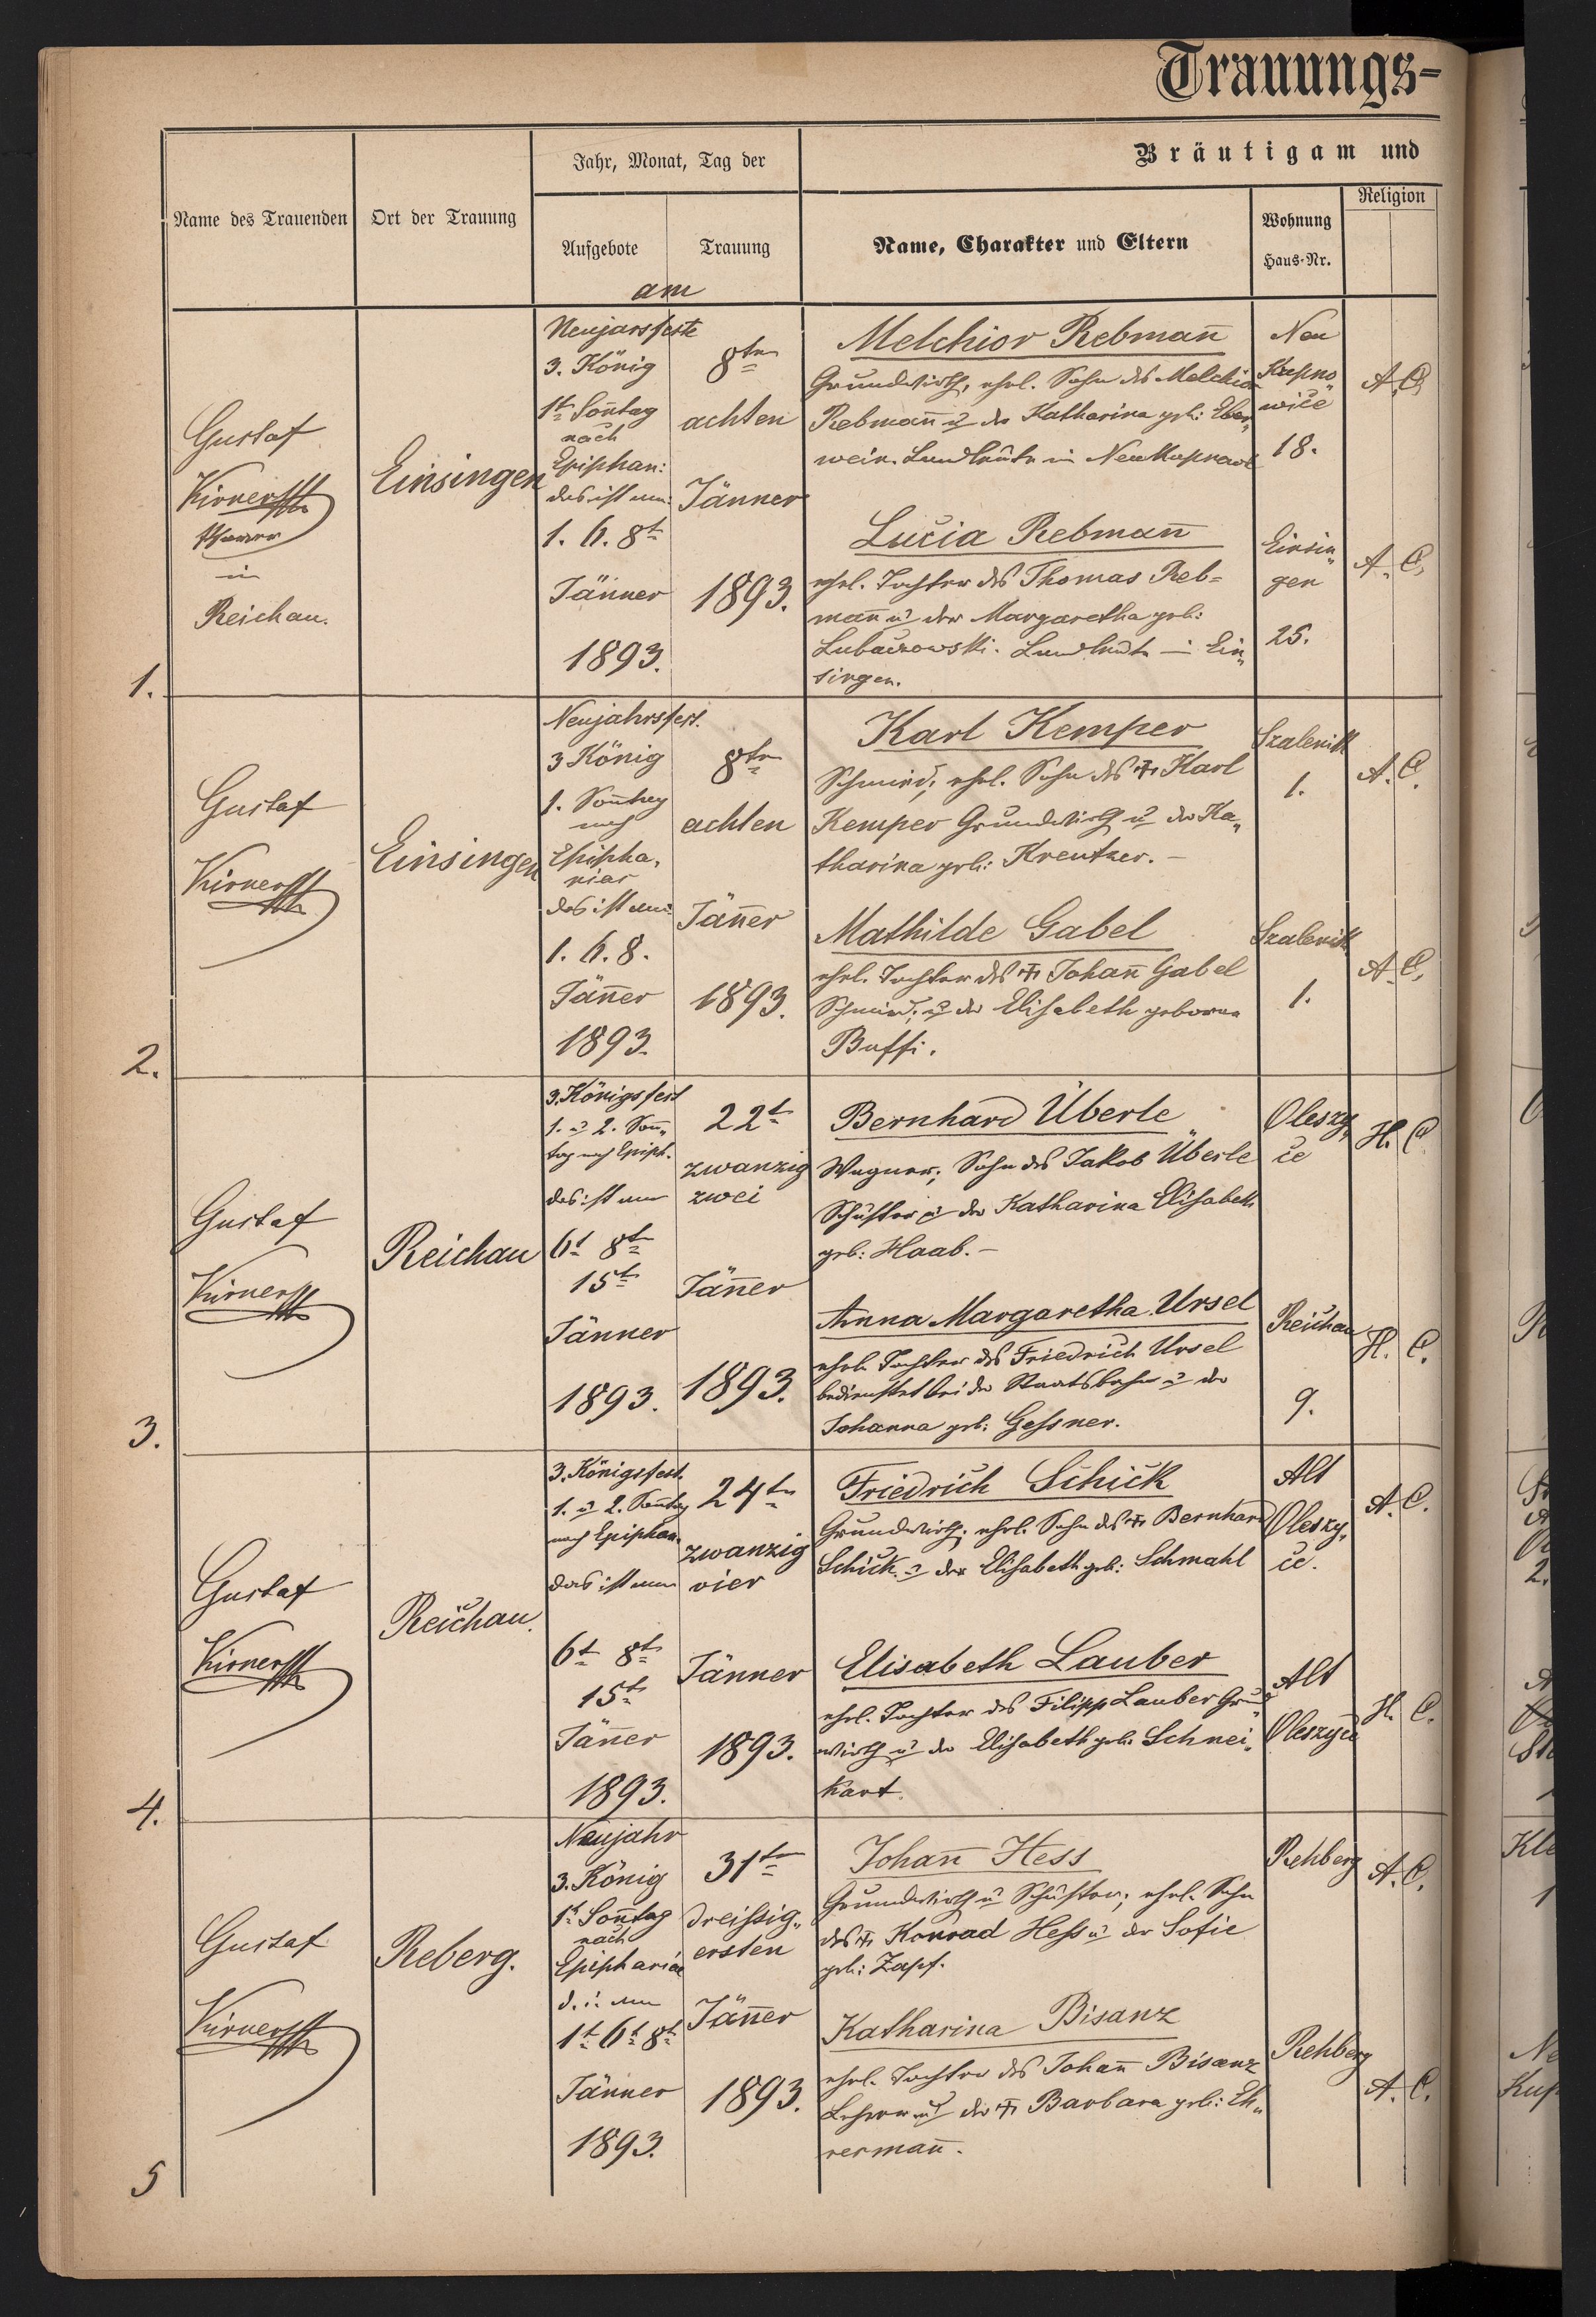 Trauungs-
Jahr, Monat, Tag der
Bräutigam und
Name des Trauenden
Ort der Trauung
Aufgebote
Trauung
am
Name, Charakter und Eltern
Wohnung
Haus-Nr.
Religion
1.
Gustaf
Kirner
Pfarrer
in
Reichau.
Einsingen
Neujarsfeste
3. König
1t Son̄tag
nach
Epiphan:
das ist am:
1. 6. 8t
Jänner
1893.
8ten
achten
Jänner
1893.
Melchior Rebman̄
Grundwirth, ehel. Sohn des Melchior
Rebman̄ u der Katharina geb: Eber„
wein. Landleute in Neu
Neu
Kupno„
wice
18.
A. C.
Lucia Rebman̄
ehel. Tochter des Thomas Reb=
man̄ u der Margaretha geb:
Lubaczowski. Landleute in Ein„
singen.
Einsin„
gen
25.
A. C.
2.
Gustaf
Kirner
Einsingen
Neujahrsfest.
3 König
1. Son̄tag
nach
Epipha„
nias
das ist am:
1. 6. 8.
Jän̄er
1893.
8ten
achten
Jän̄er
1893.
Karl Kemper
Schmied, ehel. Sohn des ✝ Karl
Kemper Grundwirth u der Ka„
tharina geb: Kreutzer. –
Szalenik
1.
A. C.
Mathilde Gabel
ehel. Tochter des ✝ Johan̄ Gabel
Schmied, u der Elisabeth geborene
Buffi.
Szalenik
1.
A. C.
3.
Gustaf
Kirner
Reichau
3. Königsfest
1. u 2. Son̄„
tag nach Epiph.
das ist am
6t 8t
15t
Jänner
1893.
22t
zwanzig
zwei
Jän̄er
1893.
Bernhard Überle
Wagner, Sohn des Jakob Überle
Schuster u der Katharina Elisabeth
geb: Haab. –
Oleszy„
ce
H. C.
Anna Margaretha Ursel
ehel. Tochter des Friedrich Ursel
bedienstet bei der Staatsbahn u der
Johanna geb: Gessner.
Reichau
9.
H. C.
4.
Gustaf
Kirner
Reichau.
3. Königsfest.
1. u 2. Son̄tag
nach Epiphan.
das ist am
6t 8t
15t
Jän̄er
1893.
24ten
zwanzig
vier
Jänner
1893.
Friedrich Schick
Grundwirth, ehel. Sohn des ✝ Bernhard
Schick u der Elisabeth geb: Schmahl
Alt
Oleszy„
ce.
A. C.
Elisabeth Lauber
ehel. Tochter des Filipp Lauber Grund„
wirth u der Elisabeth geb. Schnei„
kart.
Alt
Oleszyce
H. C.
5
Gustaf
Kirner
Reberg.
Neujahr
3. König
1t Son̄tag
nach
Epiphaniae
d. i. am
1t 6t 8t
Jänner
1893.
31ten
dreissig„
ersten
Jän̄er
1893.
Johan̄ Hess
Grundwirth u Schuster, ehel. Sohn
des ✝ Konrad Hess u der Sofie
geb: Zapf.
Rehberg
A. C.
Katharina Bisanz
ehel. Tochter des Johan̄ Bisanz
Lehrer u der ✝ Barbara geb: Eh„
rerman̄.
Rehberg
A. C.